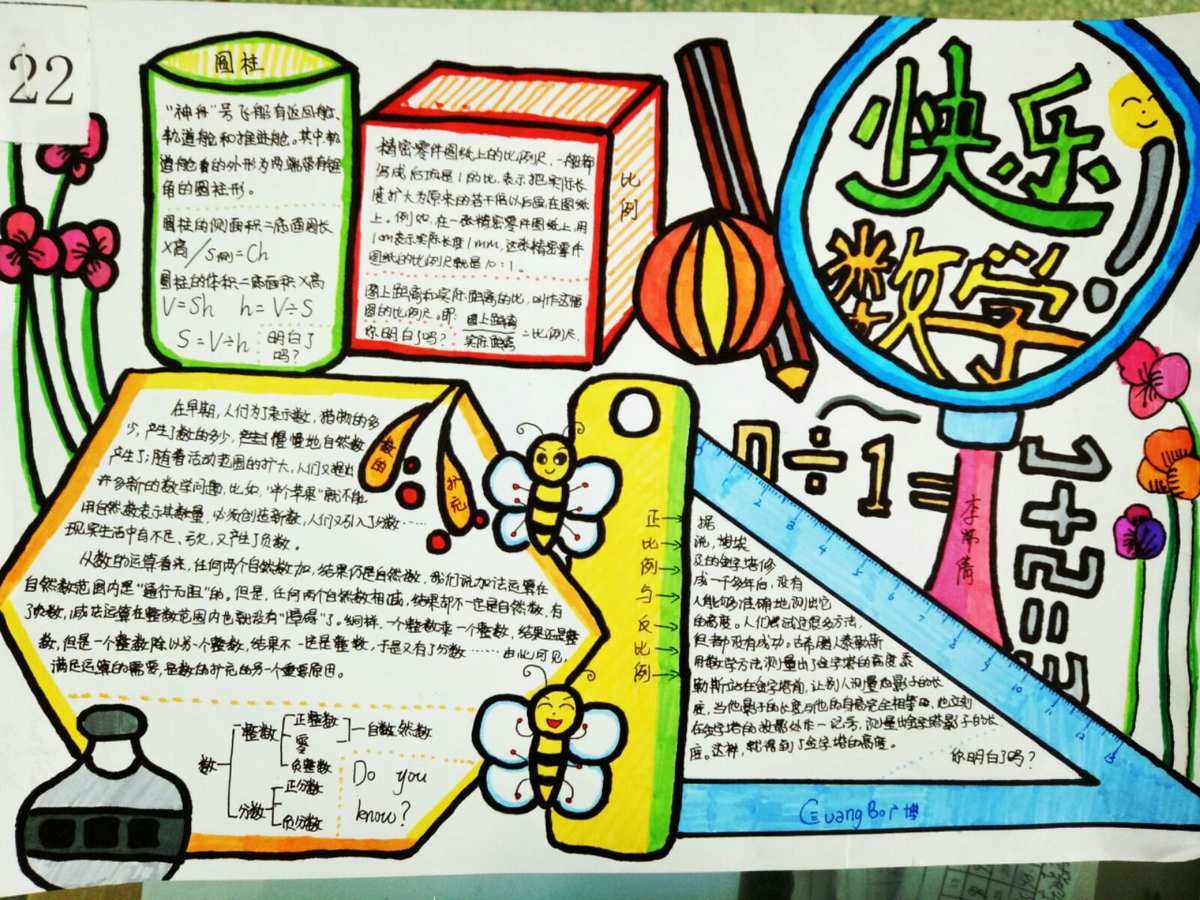 22
圆柱
"神舟"号飞船有返回舱、
轨道舱和推进舱。其中轨
道舱的外形为两端带有
角的圆柱形。
圆柱的侧面积=底面周长
×高/S侧=Ch
圆柱的体积=底面积×高
V=Sh h=V÷S
S=V÷h 明白了
吗?
精密零件图纸上的比例尺,一般都
写成后项是1的比,表示把实际长
度扩大为原来的若干倍以后画在图纸
上。例如,在一张精密零件图纸上,用
1cm表示实际长度1mm,这张精密零件
图纸的比例尺就是10:1。
图上距离和实际距离的比,叫作这幅
图的比例尺。即:图上距离
实际距离=比例尺,
你明白了吗?
比例
快乐
数学!
李
倩
0÷1=
1+2=3
数的
扩充
在早期,人们为了表示数,猎物的多
少,产生了数的多少,产生了慢慢地自然数
产生了;随着活动范围的扩大,人们又提出
许多新的数学问题,比如,"半个苹果"就不能
用自然数表示其数量,必须创造新数,人们又引入了分数……
现实生活中有不足、亏欠,又产生了负数。
从数的运算看来,任何两个自然数加,结果仍是自然数,我们说加法运算在
自然数范围内是"通行无阻"的。但是,任何两个自然数相减,结果却不一定是自然数,有
了负数,减法运算在整数范围内也就没有"障碍"了。同样,一个整数乘一个整数,结果还是整
数,但是一个整数除以另一个整数,结果不一定是整数,于是又有了分数……由此可见,
满足运算的需要,是数的扩充的另一个重要原因。
数
整数
正整数
零
负整数
自然数
分数
正分数
负分数
Do you
know?
正
比
例
与
反
比
例
据
说,埃及的金字塔修
成一千多年后,没有
人能够准确地测出它
的高度。人们尝试过很多方法,
但都没有成功。古希腊人泰勒斯
用数学方法测量出了金字塔的高度。泰
勒斯站在金字塔前,让别人测量他影子的长
度,当他影子的长度与他的身高完全相等时,他立刻
在金字塔的投影处作一记号,测量出金字塔影子的长
度。这样,就得到了金字塔的高度。
你明白了吗?
GuangBo广博